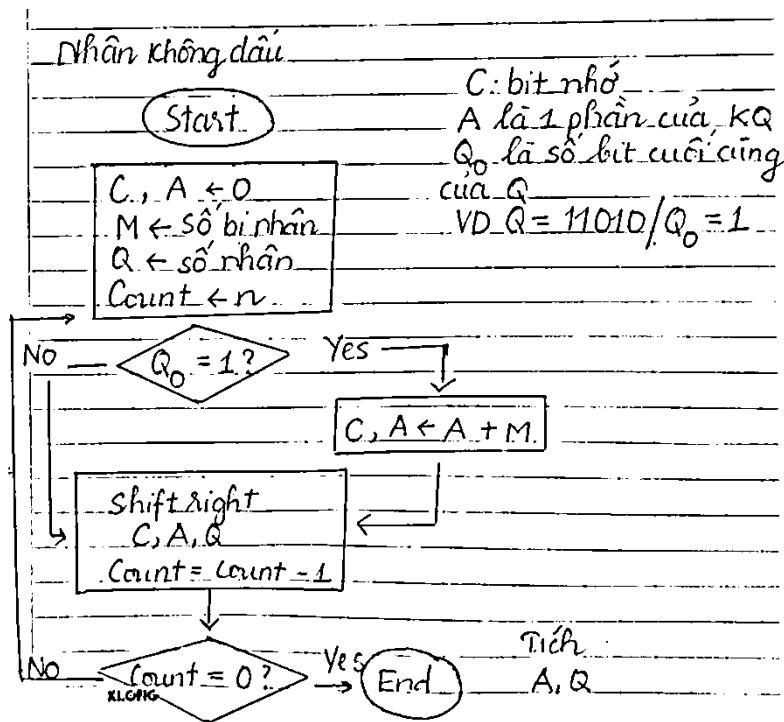 Nhân không dấu
Start
C, A ← 0
M ← số bị nhân
Q ← số nhân
Count ← n
C: bit nhớ
A là 1 phần của KQ
Q₀ là số bit cuối cùng
của Q
VD Q = 11010/Q₀ = 1
No
Q₀ = 1?
Yes
C, A ← A + M.
Shift right
C, A, Q
Count = count - 1
No
Count = 0?
Yes
End
Tích
A, Q